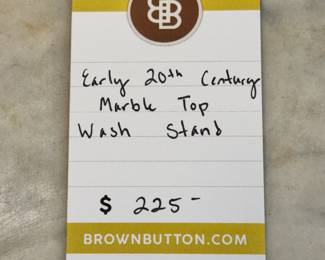 BB
Early 20th Century
Marble Top
Wash Stand
$ 225-
BROWNBUTTON.COM